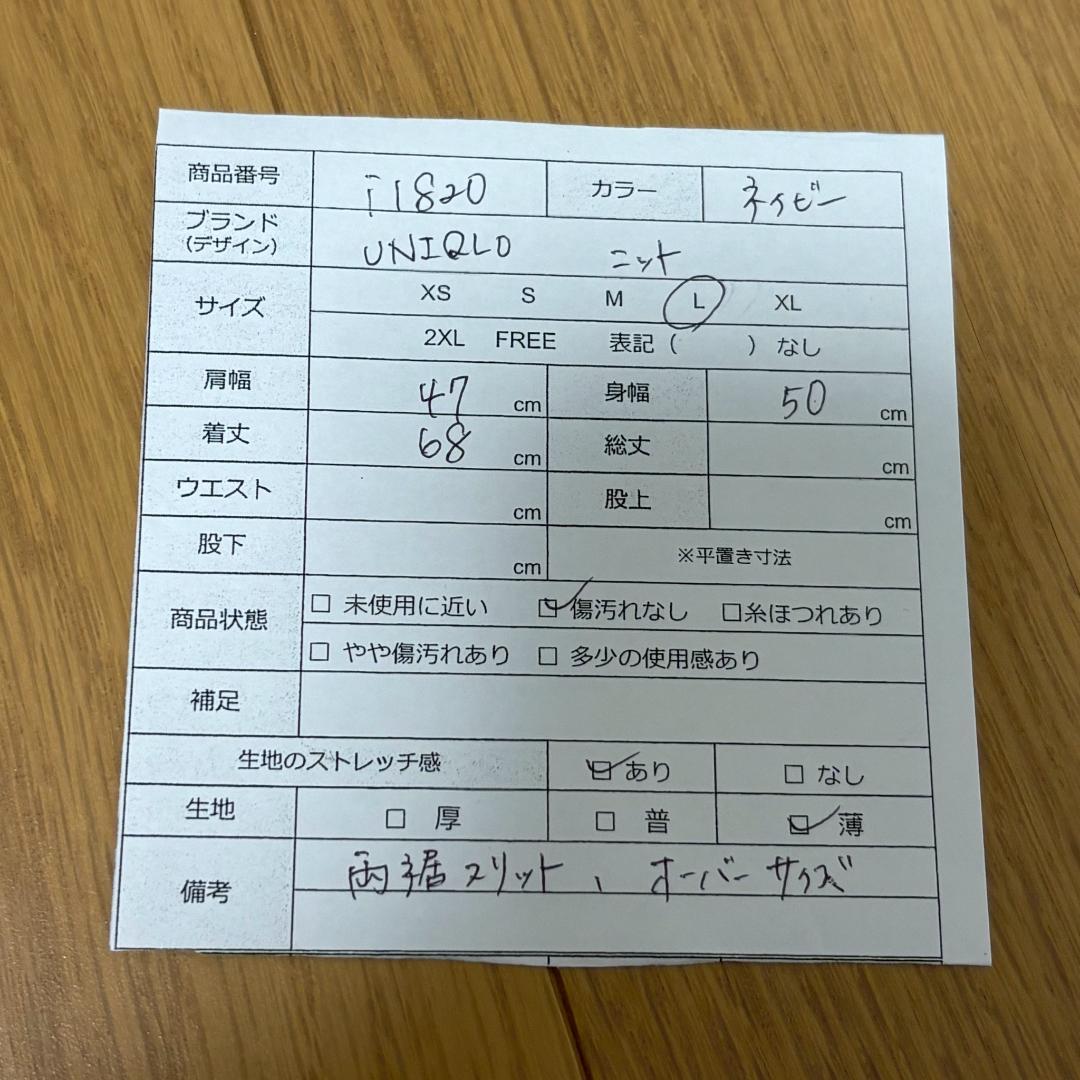 商品番号 i1820 カラー ネイビー
ブランド
(デザイン) UNIQLO ニット
サイズ XS S M L XL
2XL FREE 表記 ( ) なし
肩幅 47 cm 身幅 50 cm
着丈 68 cm 総丈 cm
ウエスト cm 股上 cm
股下 cm ※平置き寸法
商品状態 □ 未使用に近い ☑ 傷汚れなし □糸ほつれあり
□ やや傷汚れあり □ 多少の使用感あり
補足
生地のストレッチ感 ☑ あり □ なし
生地 □ 厚 □ 普 ☑ 薄
備考 両裾スリット、オーバーサイズ